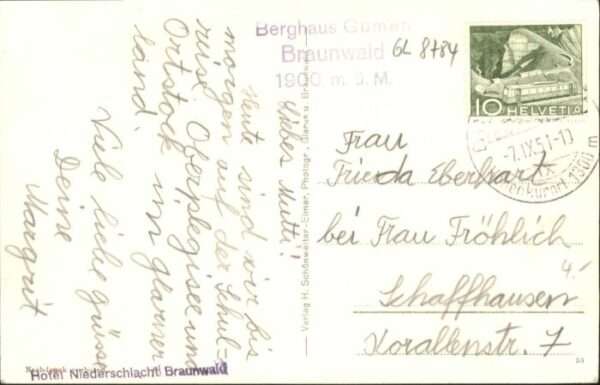 Berghaus Gumen
Braunwald
1900 m. ü. M.
GL 8784
10 HELVETIA
-7.IX.51-17
Liebes Mutti!
Heute sind wir bis
morgen auf der Schul-
reise Oberblegisee und
Ortstock im Glarner
land.
Viele liebe Grüsse
Deine
Margrit
Verlag H. Schönwetter-Elmer, Photogr., Glarus u. Braunwald
Frau
Frieda Eberhart
bei Frau Fröhlich
4.-
Schaffhausen
Korallenstr. 7
Hotel Niederschlacht Braunwald